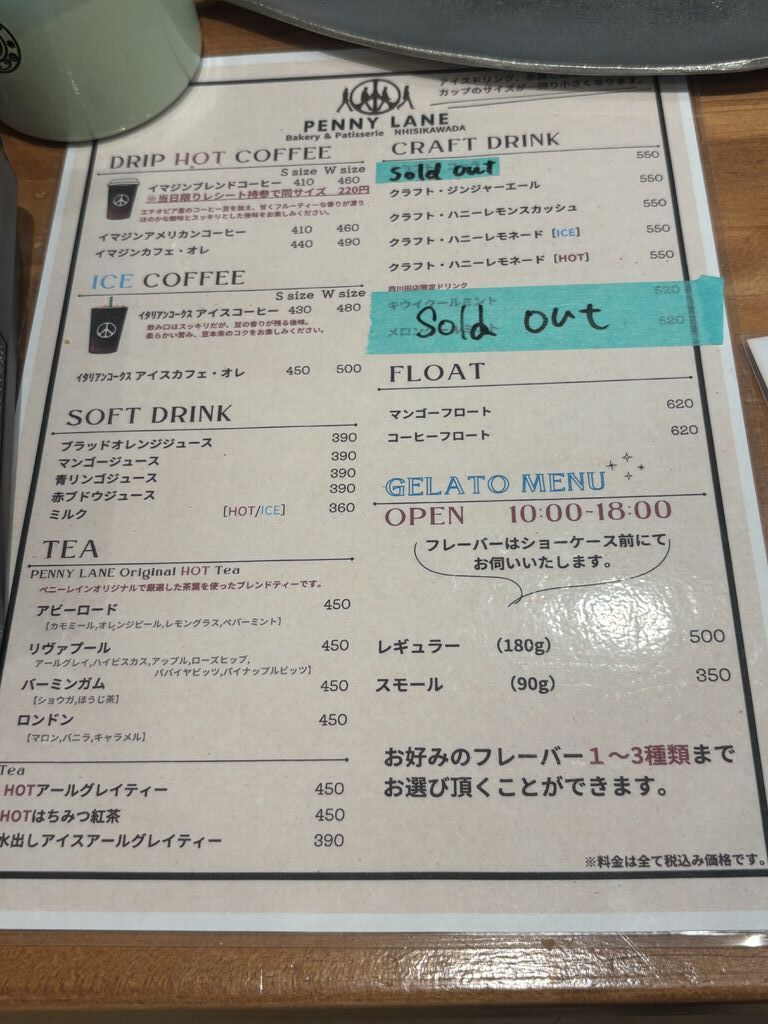 アイスドリンク、氷
カップのサイズが一回り小さくなります。
PENNY LANE
Bakery & Patisserie NHISIKAWADA
DRIP HOT COFFEE
S size W size
イマジンブレンドコーヒー 410 460
※当日限りレシート持参で同サイズ 220円
エチオピア産のコーヒー豆を加え、甘くフルーティーな香りが漂う
ほのかな酸味とスッキリとした後味をお楽しみください。
イマジンアメリカンコーヒー 410 460
イマジンカフェ・オレ 440 490
ICE COFFEE
S size W size
イタリアンコークス アイスコーヒー 430 480
飲み口はスッキリだが、豆の香りが残る後味。
柔らかい苦み、豆本来のコクをお楽しみください。
イタリアンコークス アイスカフェ・オレ 450 500
SOFT DRINK
ブラッドオレンジジュース 390
マンゴージュース 390
青リンゴジュース 390
赤ブドウジュース 390
ミルク [HOT/ICE] 360
TEA
PENNY LANE Original HOT Tea
ペニーレインオリジナルで厳選した茶葉を使ったブレンドティーです。
アビーロード 450
[カモミール,オレンジピール,レモングラス,ペパーミント]
リヴァプール 450
アールグレイ,ハイビスカス,アップル,ローズヒップ,
パパイヤビッツ,パイナップルビッツ]
バーミンガム 450
[ショウガ,ほうじ茶]
ロンドン 450
[マロン,バニラ,キャラメル]
Tea
HOTアールグレイティー 450
HOTはちみつ紅茶 450
水出しアイスアールグレイティー 390
CRAFT DRINK
Sold out 550
クラフト・ジンジャーエール 550
クラフト・ハニーレモンスカッシュ 550
クラフト・ハニーレモネード [ICE] 550
クラフト・ハニーレモネード [HOT] 550
西川田店限定ドリンク
キウイクールミント 520
Sold out
メロンクールミント 520
FLOAT
マンゴーフロート 620
コーヒーフロート 620
GELATO MENU
OPEN 10:00~18:00
フレーバーはショーケース前にて
お伺いいたします。
レギュラー (180g) 500
スモール (90g) 350
お好みのフレーバー1～3種類まで
お選び頂くことができます。
※料金は全て税込み価格です。